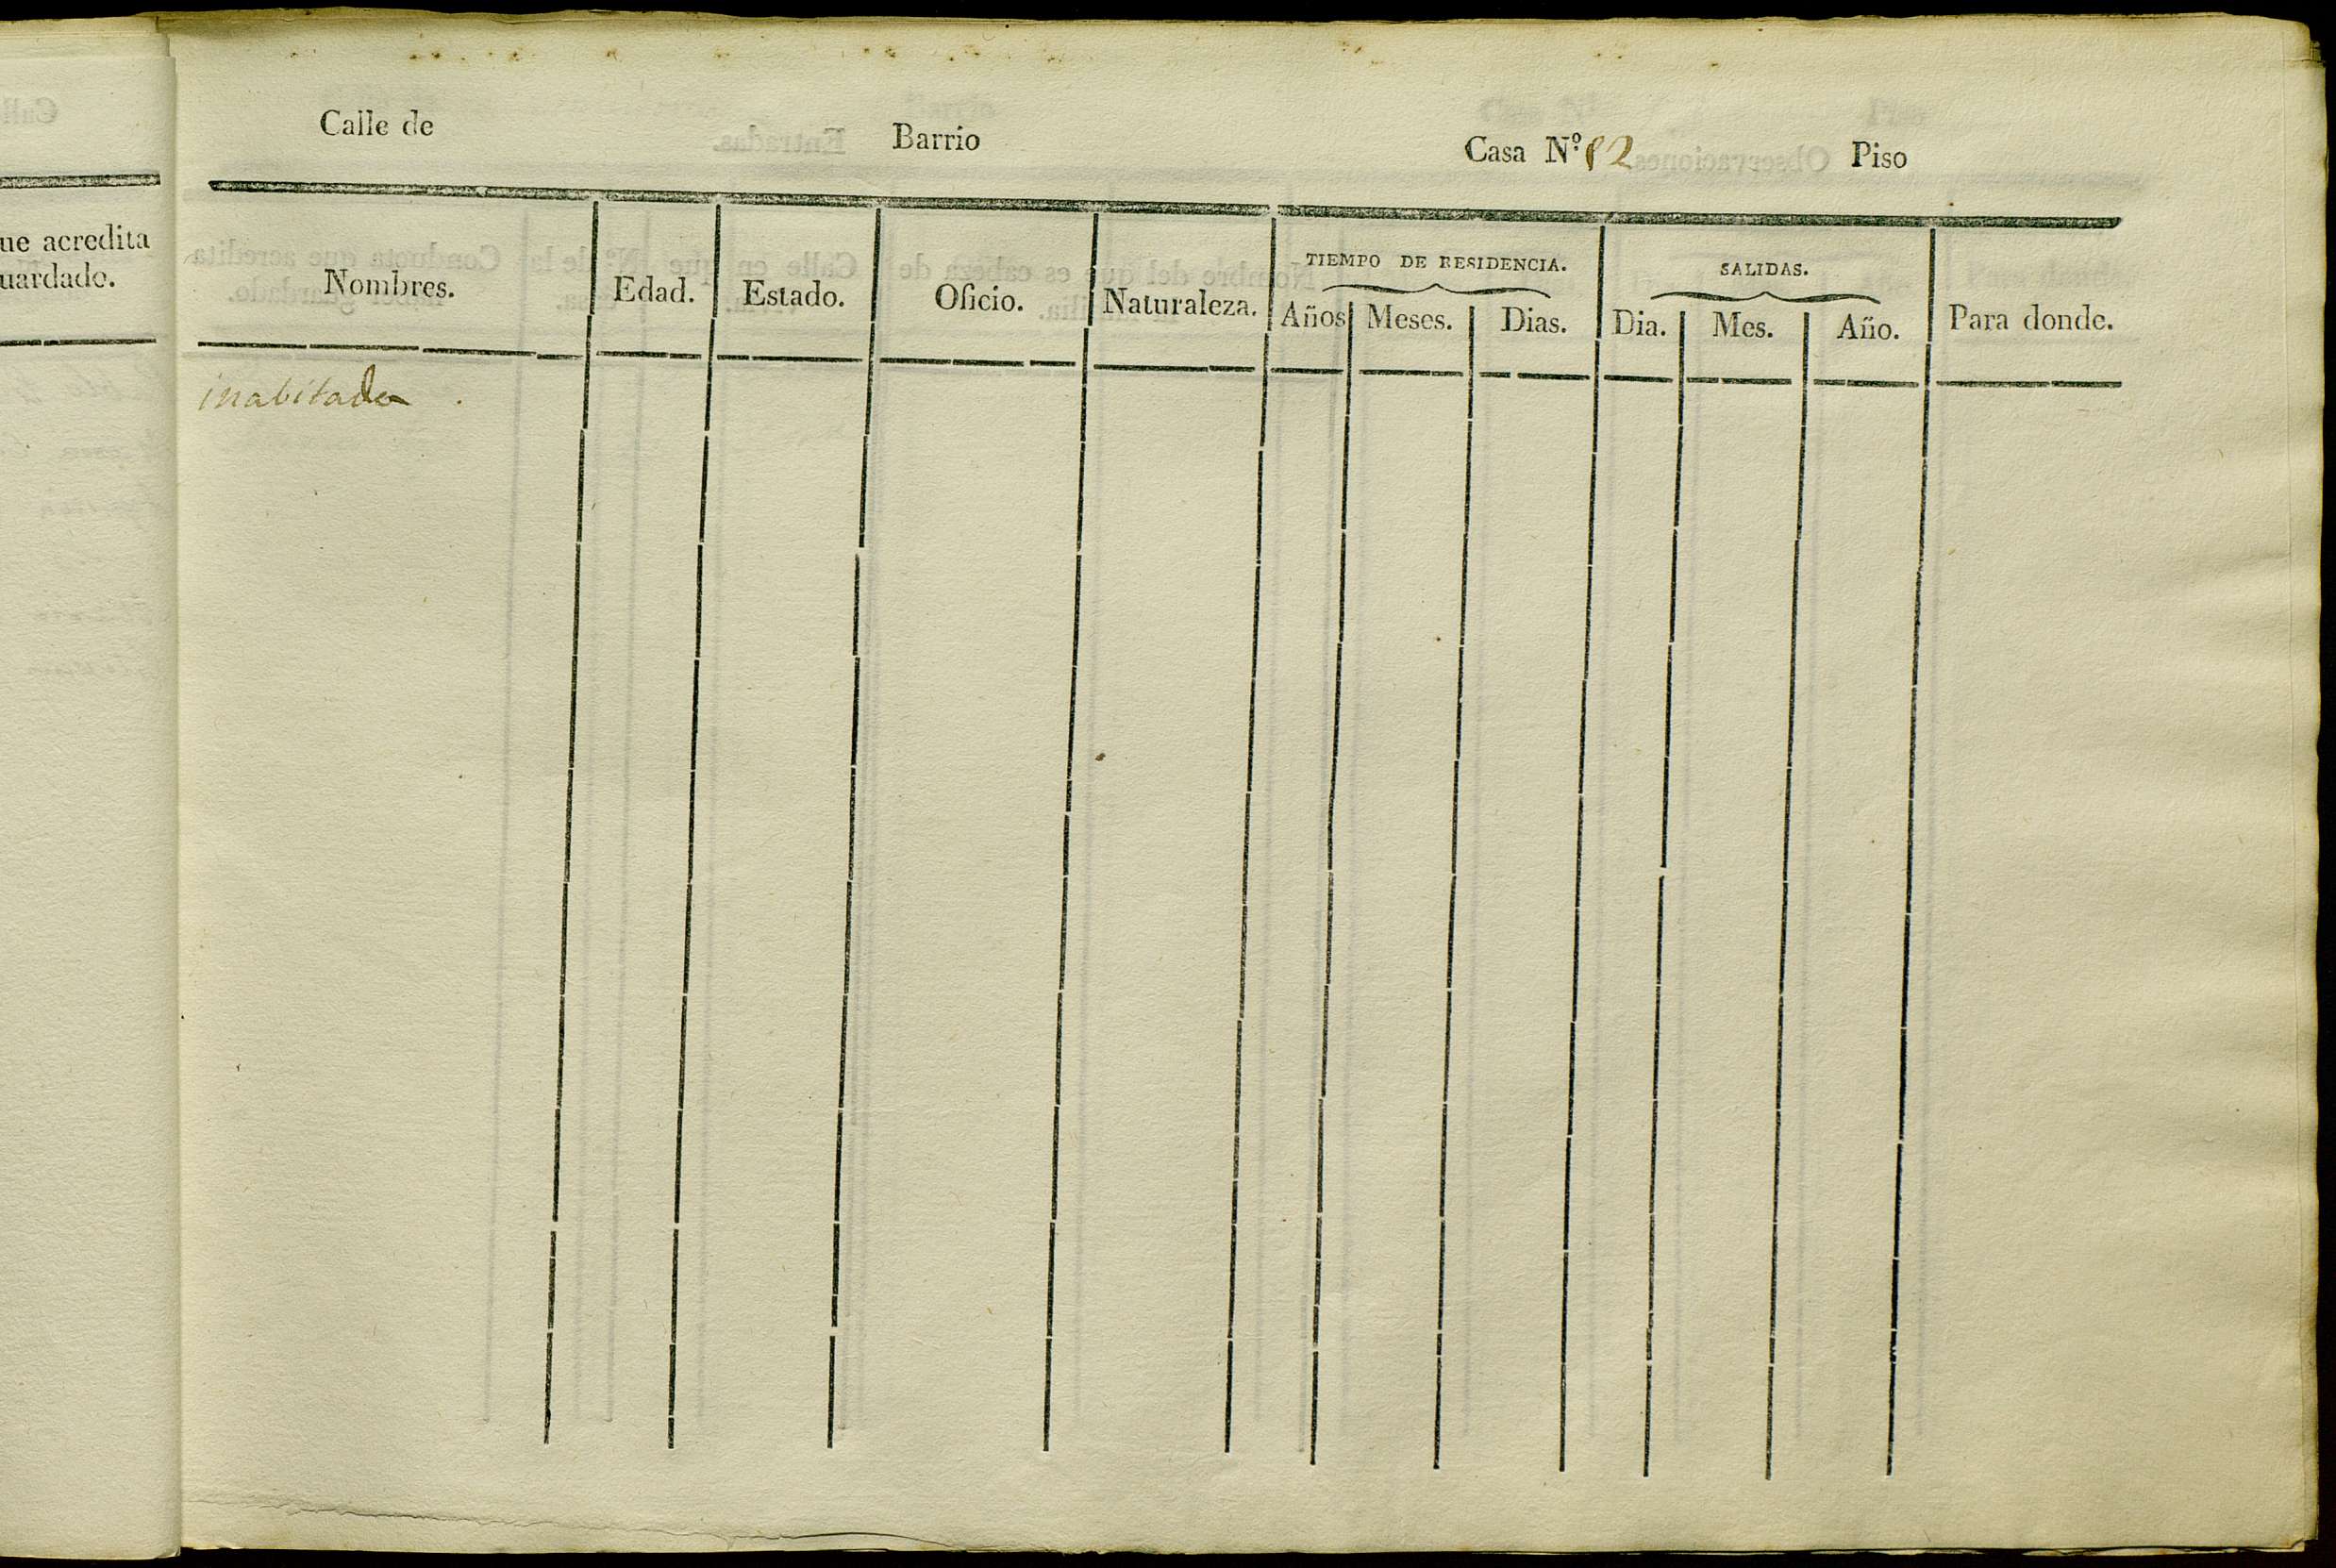 Calle de Barrio Casa Nº. 82 Piso
ue acredita
uardado.
Nombres. Edad. Estado. Oficio. Naturaleza. TIEMPO DE RESIDENCIA. SALIDAS. Para donde.
Años Meses. Dias. Dia. Mes. Año.
inabitada